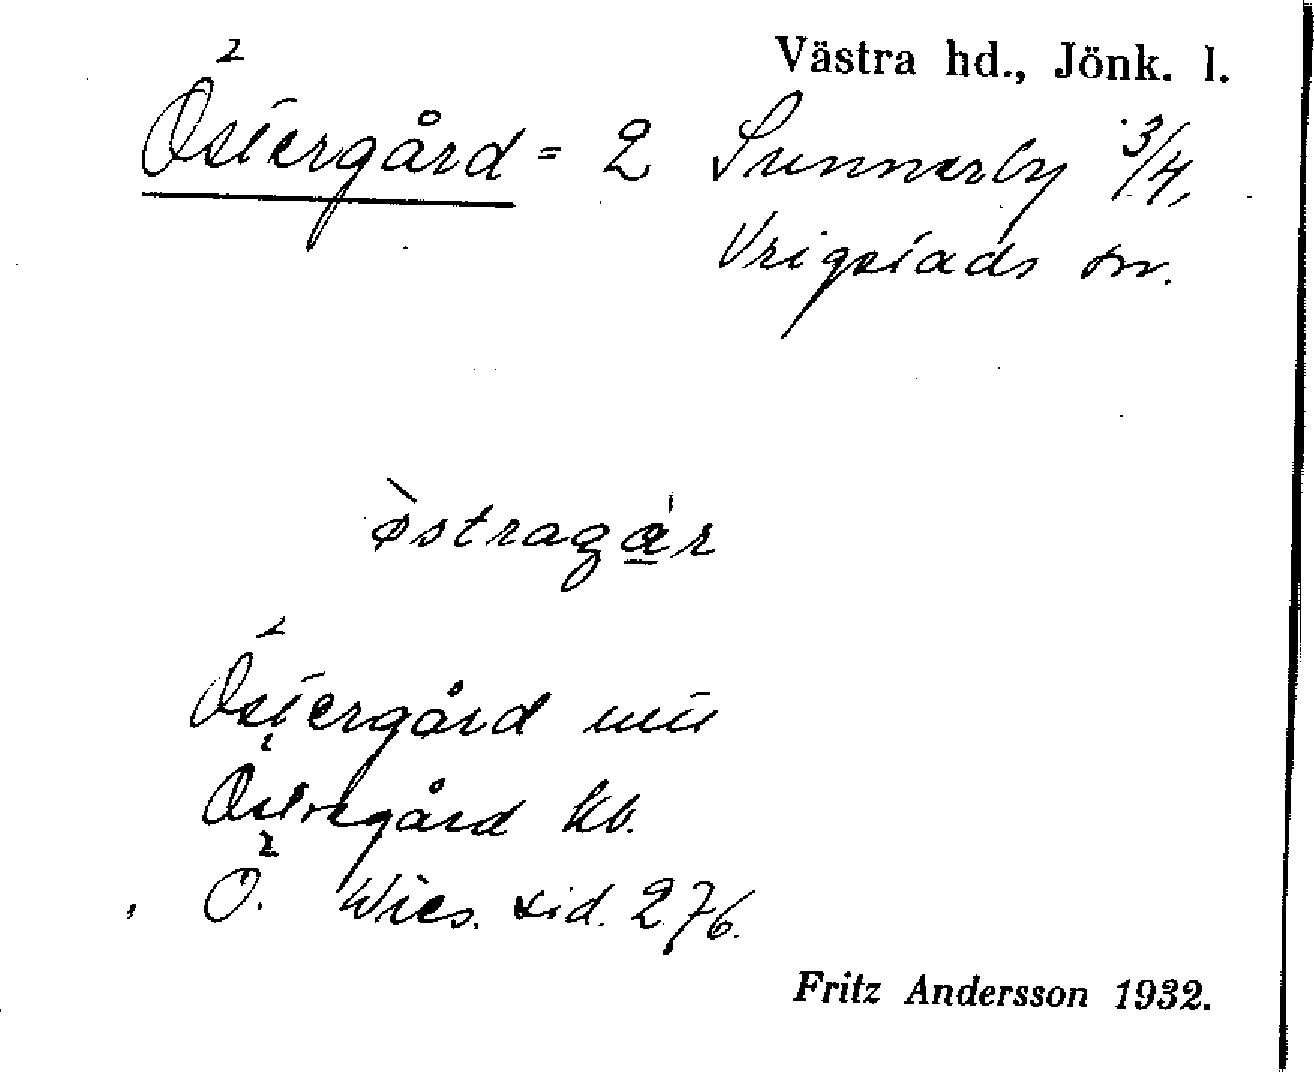 Västra hd., Jönk. l.
Östergård = 2 Sunnerby 3/4,
Vrigstads sn.
òstragá̱r
Östergård
Östregård kb.
Ö. Wies. sid. 276.
Fritz Andersson 1932.